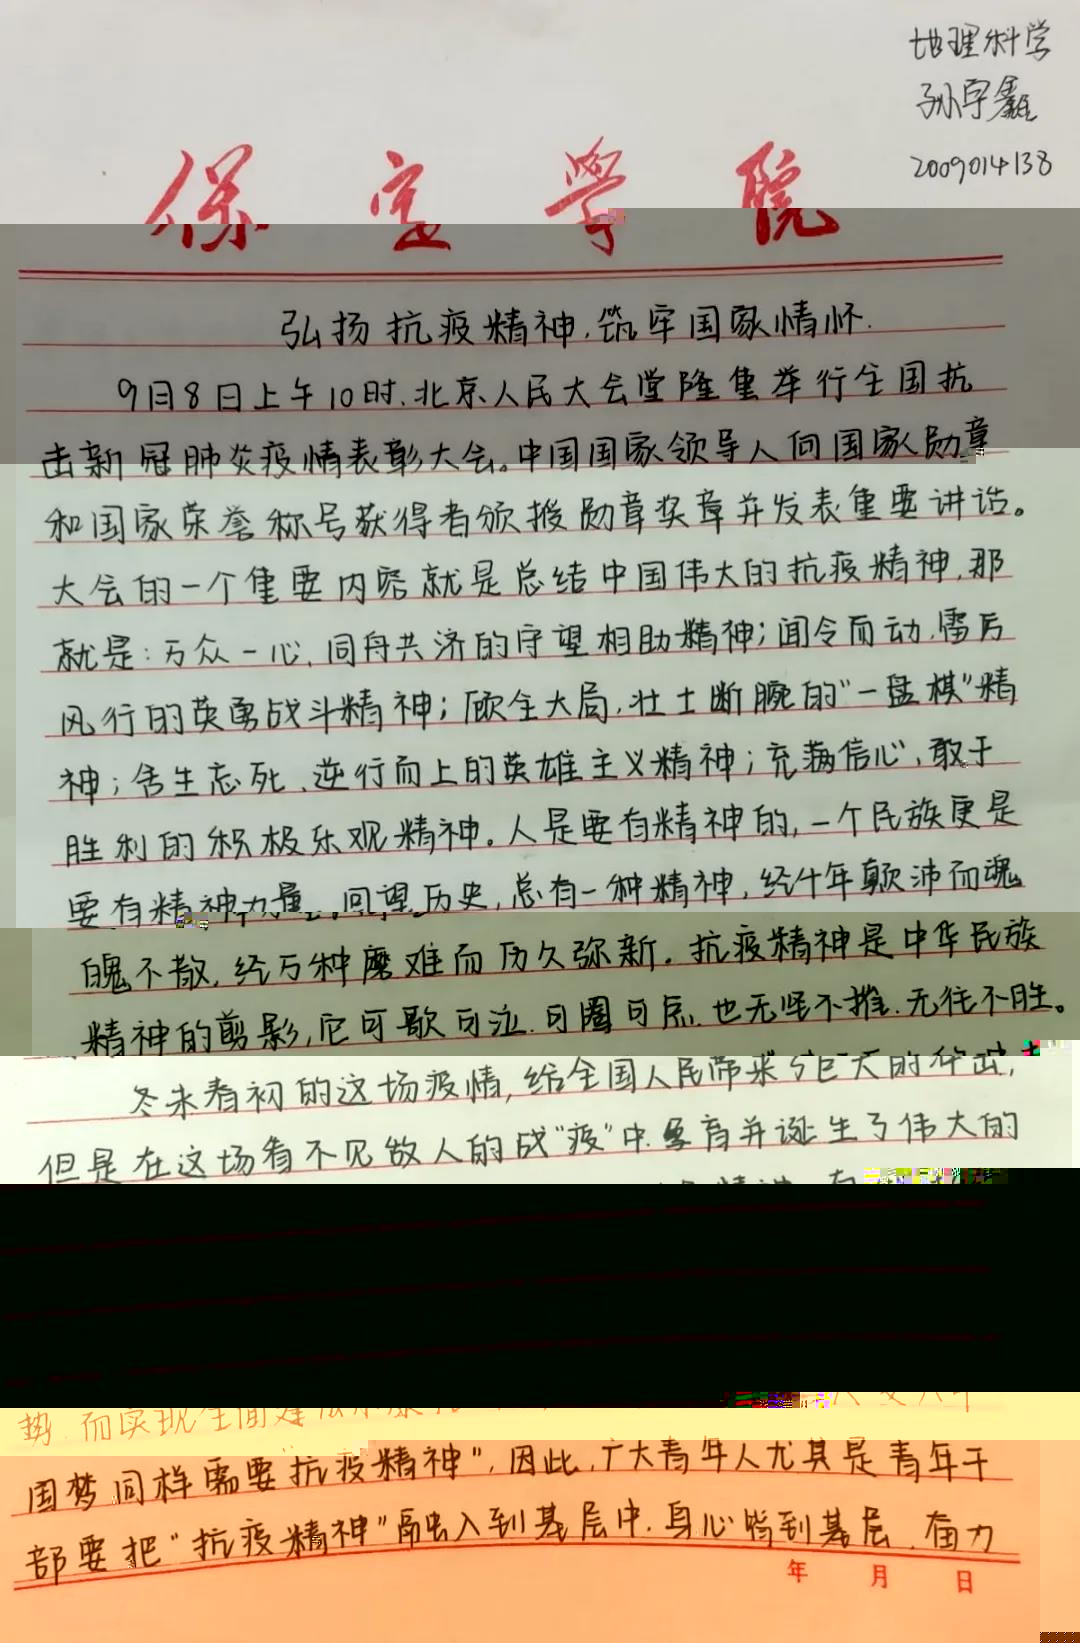 地理科学
孙宇鑫
2009014138
保定学院
弘扬抗疫精神,筑牢国家情怀.
9月8日上午10时,北京人民大会堂隆重举行全国抗
击新冠肺炎疫情表彰大会。中国国家领导人向国家勋章
和国家荣誉称号获得者颁授勋章奖章并发表重要讲话。
大会的一个重要内容就是总结中国伟大的抗疫精神,那
就是:万众一心、同舟共济的守望相助精神;闻令而动,雷厉
风行的英勇战斗精神;顾全大局,壮士断腕的"一盘棋"精
神;舍生忘死、逆行而上的英雄主义精神;充满信心,敢于
胜利的积极乐观精神。人是要有精神的,一个民族更是
要有精神力量,回望历史,总有一种精神,经千年颠沛而魂
魄不散,经万种磨难而历久弥新。抗疫精神是中华民族
精神的剪影,它可歌可泣,可圈可点,也无坚不摧,无往不胜。
冬末春初的这场疫情,给全国人民带来了巨大的付出,
但是在这场看不见敌人的战"疫"中,孕育并诞生了伟大的
势,而实现全面建
国梦同样需要"抗疫精神",因此,广大青年人尤其是青年干
部要把"抗疫精神"融入到基层中,身心皆到基层,奋力
年 月 日